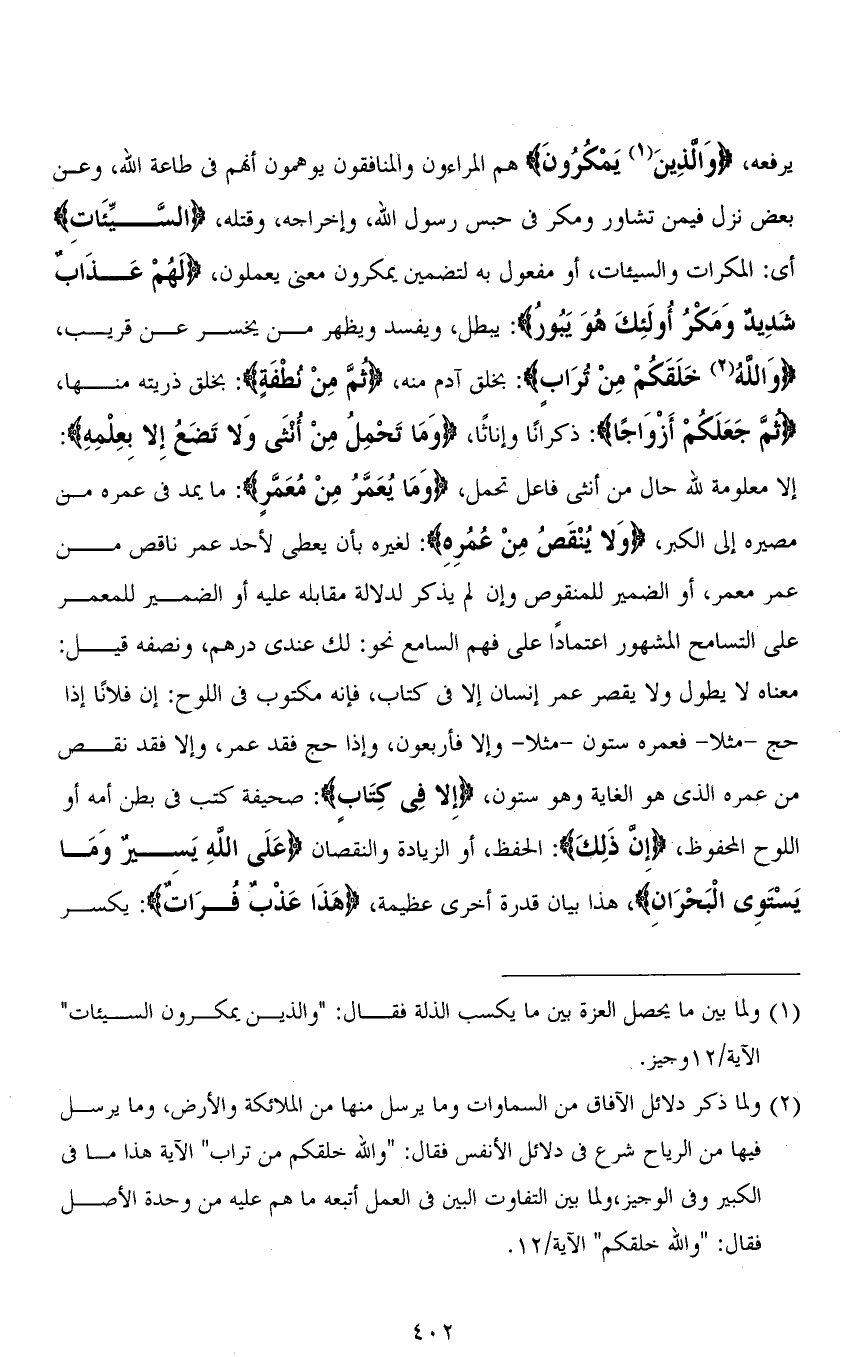 يرفعه، ﴿وَالَّذِينَ(١) يَمْكُرُونَ﴾ هم المراءون والمنافقون يوهمون أنهم فى طاعة الله، وعن
بعض نزل فيمن تشاور ومكر فى حبس رسول الله، وإخراجه، وقتله، ﴿السَّيِّئَاتِ﴾
أى: المكرات والسيئات، أو مفعول به لتضمين يمكرون معنى يعملون، ﴿لَهُمْ عَذَابٌ
شَدِيدٌ وَمَكْرُ أُولَئِكَ هُوَ يَبُورُ﴾: يبطل، ويفسد ويظهر من يخسر عن قريب،
﴿وَاللَّهُ(٢) خَلَقَكُمْ مِنْ تُرَابٍ﴾: بخلق آدم منه، ﴿ثُمَّ مِنْ نُطْفَةٍ﴾: بخلق ذريته منها،
﴿ثُمَّ جَعَلَكُمْ أَزْوَاجًا﴾: ذكرانًا وإناثًا، ﴿وَمَا تَحْمِلُ مِنْ أُنْثَى وَلا تَضَعُ إِلا بِعِلْمِهِ﴾:
إلا معلومة لله حال من أنثى فاعل تحمل، ﴿وَمَا يُعَمَّرُ مِنْ مُعَمَّرٍ﴾: ما يمد فى عمره من
مصيره إلى الكبر، ﴿وَلا يُنْقَصُ مِنْ عُمُرِهِ﴾: لغيره بأن يعطى لأحد عمر ناقص من
عمر معمر، أو الضمير للمنقوص وإن لم يذكر لدلالة مقابله عليه أو الضمير للمعمر
على التسامح المشهور اعتمادًا على فهم السامع نحو: لك عندى درهم، ونصفه قيل:
معناه لا يطول ولا يقصر عمر إنسان إلا فى كتاب، فإنه مكتوب فى اللوح: إن فلانًا إذا
حج -مثلا- فعمره ستون -مثلا- وإلا فأربعون، وإذا حج فقد عمر، وإلا فقد نقص
من عمره الذى هو الغاية وهو ستون، ﴿إِلا فِي كِتَابٍ﴾: صحيفة كتب فى بطن أمه أو
اللوح المحفوظ، ﴿إِنَّ ذَلِكَ﴾: الحفظ، أو الزيادة والنقصان ﴿عَلَى اللَّهِ يَسِيرٌ وَمَا
يَسْتَوِى الْبَحْرَانِ﴾، هذا بيان قدرة أخرى عظيمة، ﴿هَذَا عَذْبٌ فُرَاتٌ﴾: يكسر
(١) ولما بين ما يحصل العزة بين ما يكسب الذلة فقال: "والذين يمكرون السيئات"
الآية/١٢وجيز.
(٢) ولما ذكر دلائل الآفاق من السماوات وما يرسل منها من الملائكة والأرض، وما يرسل
فيها من الرياح شرع فى دلائل الأنفس فقال: "والله خلقكم من تراب" الآية هذا ما فى
الكبير وفى الوجيز،ولما بين التفاوت البين فى العمل أتبعه ما هم عليه من وحدة الأصل
فقال: "والله خلقكم" الآية/١٢.
٤٠٢